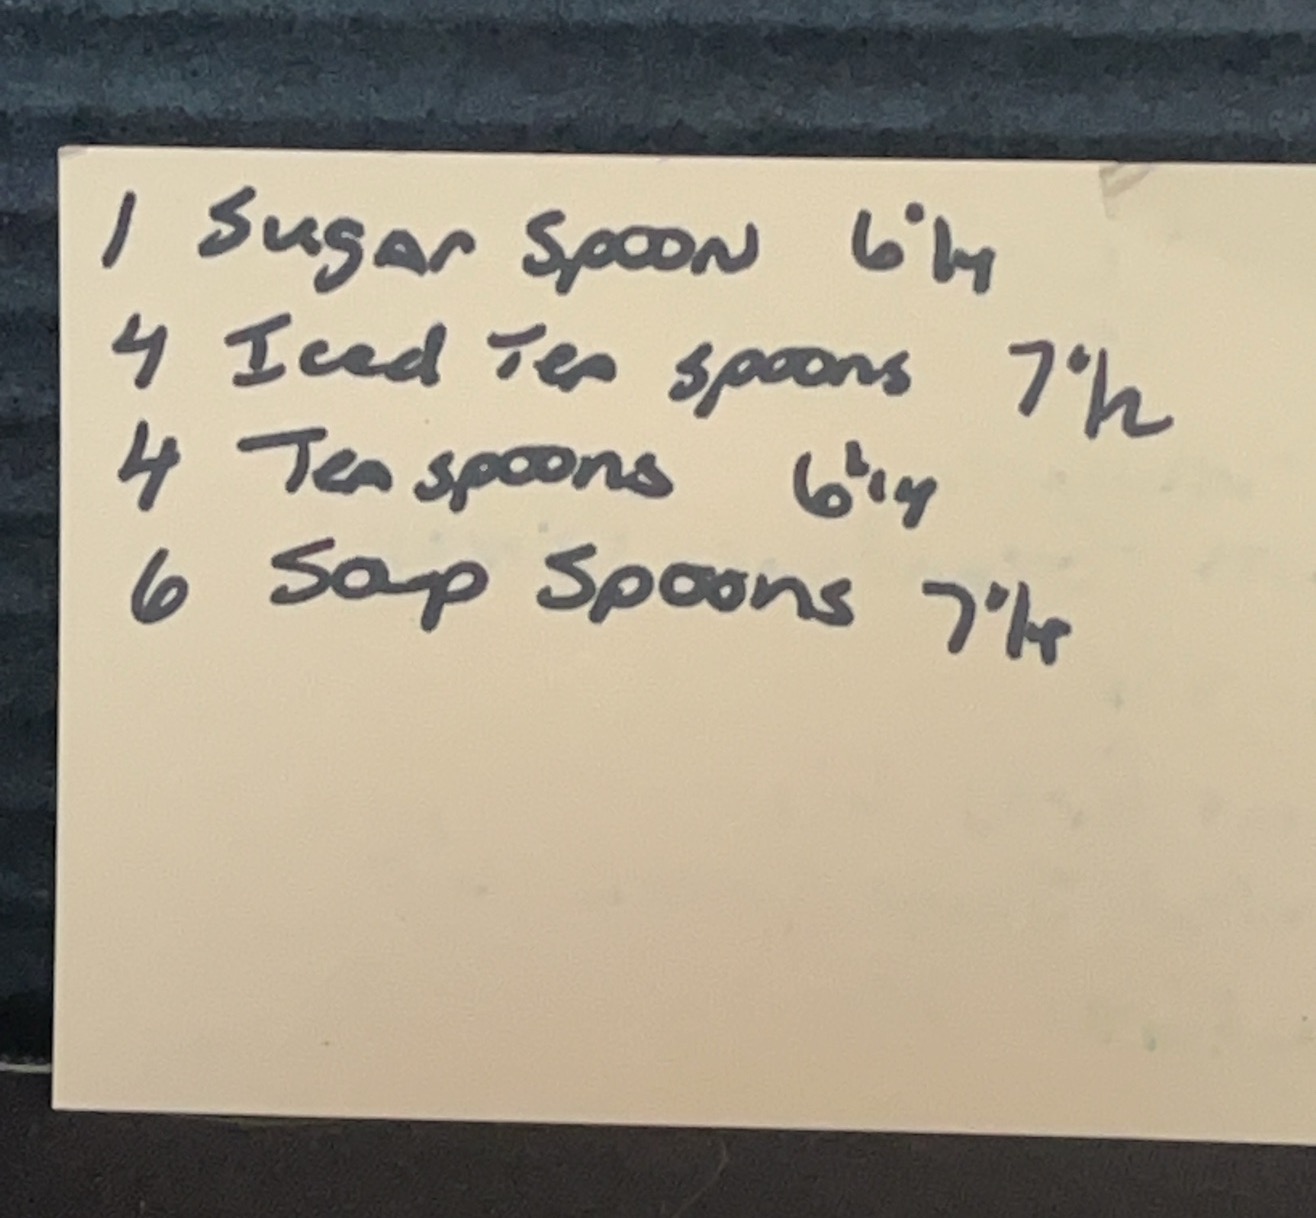 1 Sugar Spoon 6 1/4
4 Iced Tea spoons 7 1/2
4 Tea spoons 6 1/4
6 Soup Spoons 7 1/4